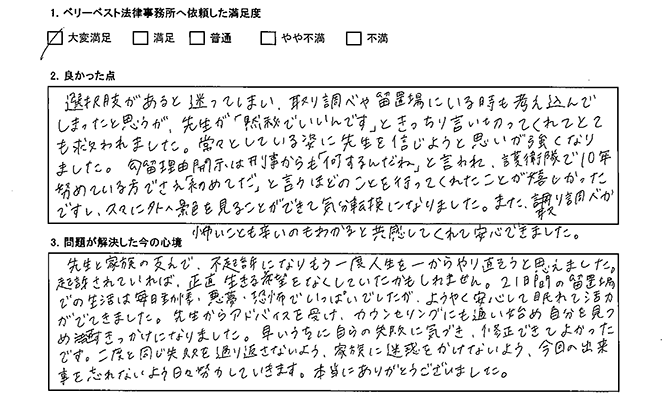 1. ベリーベスト法律事務所へ依頼した満足度
大変満足 満足 普通 やや不満 不満
2. 良かった点
選択肢があると迷ってしまい、取り調べや留置場にいる時も考え込んで
しまったと思うが、先生が「黙秘でいいんです」ときっちり言い切ってくれてとて
も救われました。常々としている姿に先生を信じようと思いが強くなり
ました。勾留理由開示は刑事からも「何するんだね」と言われ、護衛隊で10年
努めている方でさえ初めてだ」と言うほどのことを行ってくれたことが嬉しかった
ですし、久々に外へ景色を見ることができて気分転換になりました。また、取り調べが
怖いことも辛いのもわかると共感してくれて安心できました。
3. 問題が解決した今の心境
先生と家族の支えで、不起訴になりもう一度人生を一からやり直そうと思えました。
起訴されていれば、正直生きる希望をなくしていたかもしれません。21日間の留置場
での生活は毎日 悪夢・恐怖でいっぱいでしたが、ようやく安心して眠れて活力
がでてきました。先生からアドバイスを受け、カウンセリングにも通い始め自分を見つ
め直すきっかけになりました。早いうちに自らの失敗に気づき、修正できてよかった
です。二度と同じ失敗を繰り返さないよう、家族に迷惑をかけないよう、今回の出来
事を忘れないよう日々努力していきます。本当にありがとうございました。